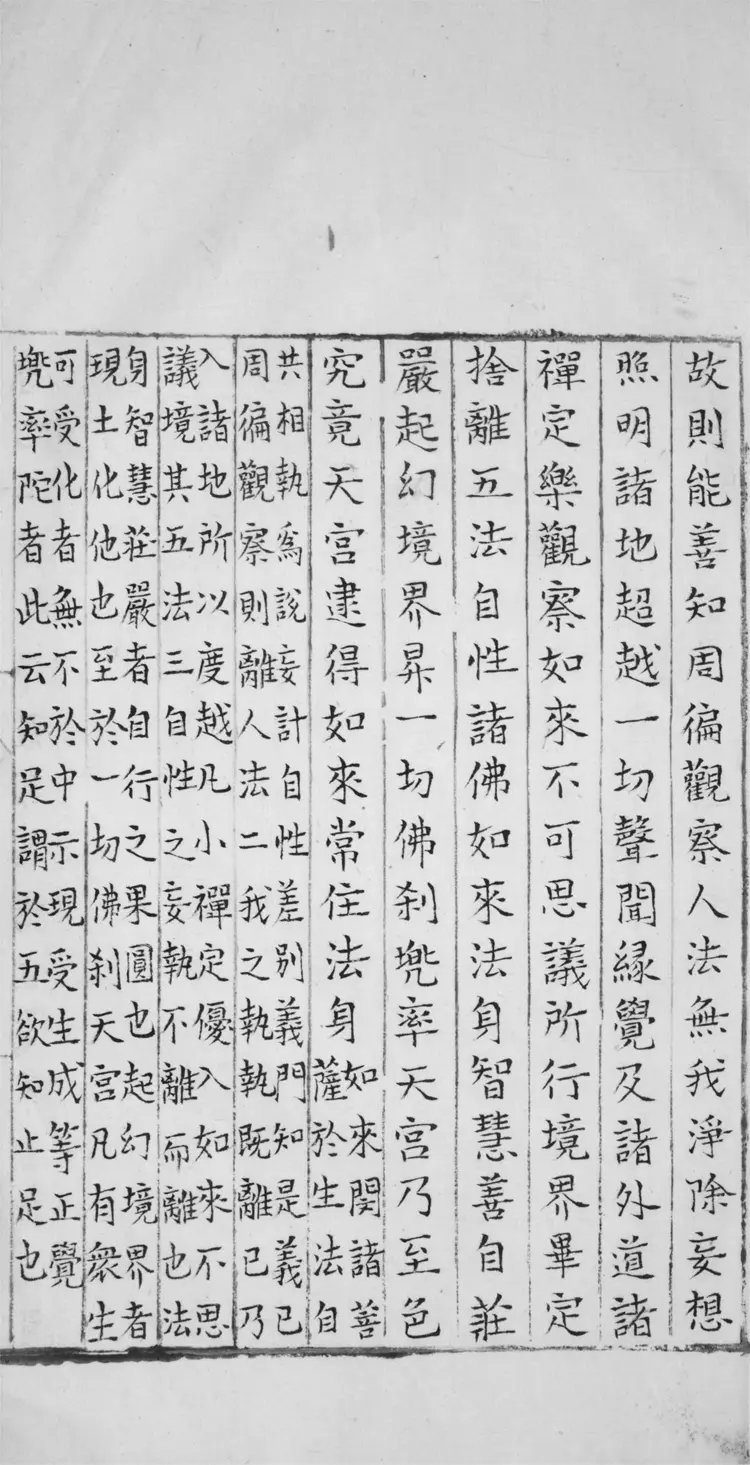 故則能善知周徧觀察人法無我淨除妄想
照明諸地超越一切聲聞緣覺及諸外道諸
禪定樂觀察如來不可思議所行境界畢定
捨離五法自性諸佛如來法身智慧善自莊
嚴起幻境界昇一切佛刹兠率天宮乃至色
究竟天宮逮得如來常住法身如來開諸善
薩於生法自
共相執爲說妄計自性差別義門知是義已
周徧觀察則離人法二我之執執既離已乃
入諸地所以度越凡小禪定優入如來不思
議境其五法三自性之妄執不離而離也法
身智慧莊嚴者自行之果圓也起幻境界者
現土化他也至於一切佛刹天宮凡有衆生
可受化者無不於中示現受生成等正覺
兠率陀者此云知足謂於五欲知止足也